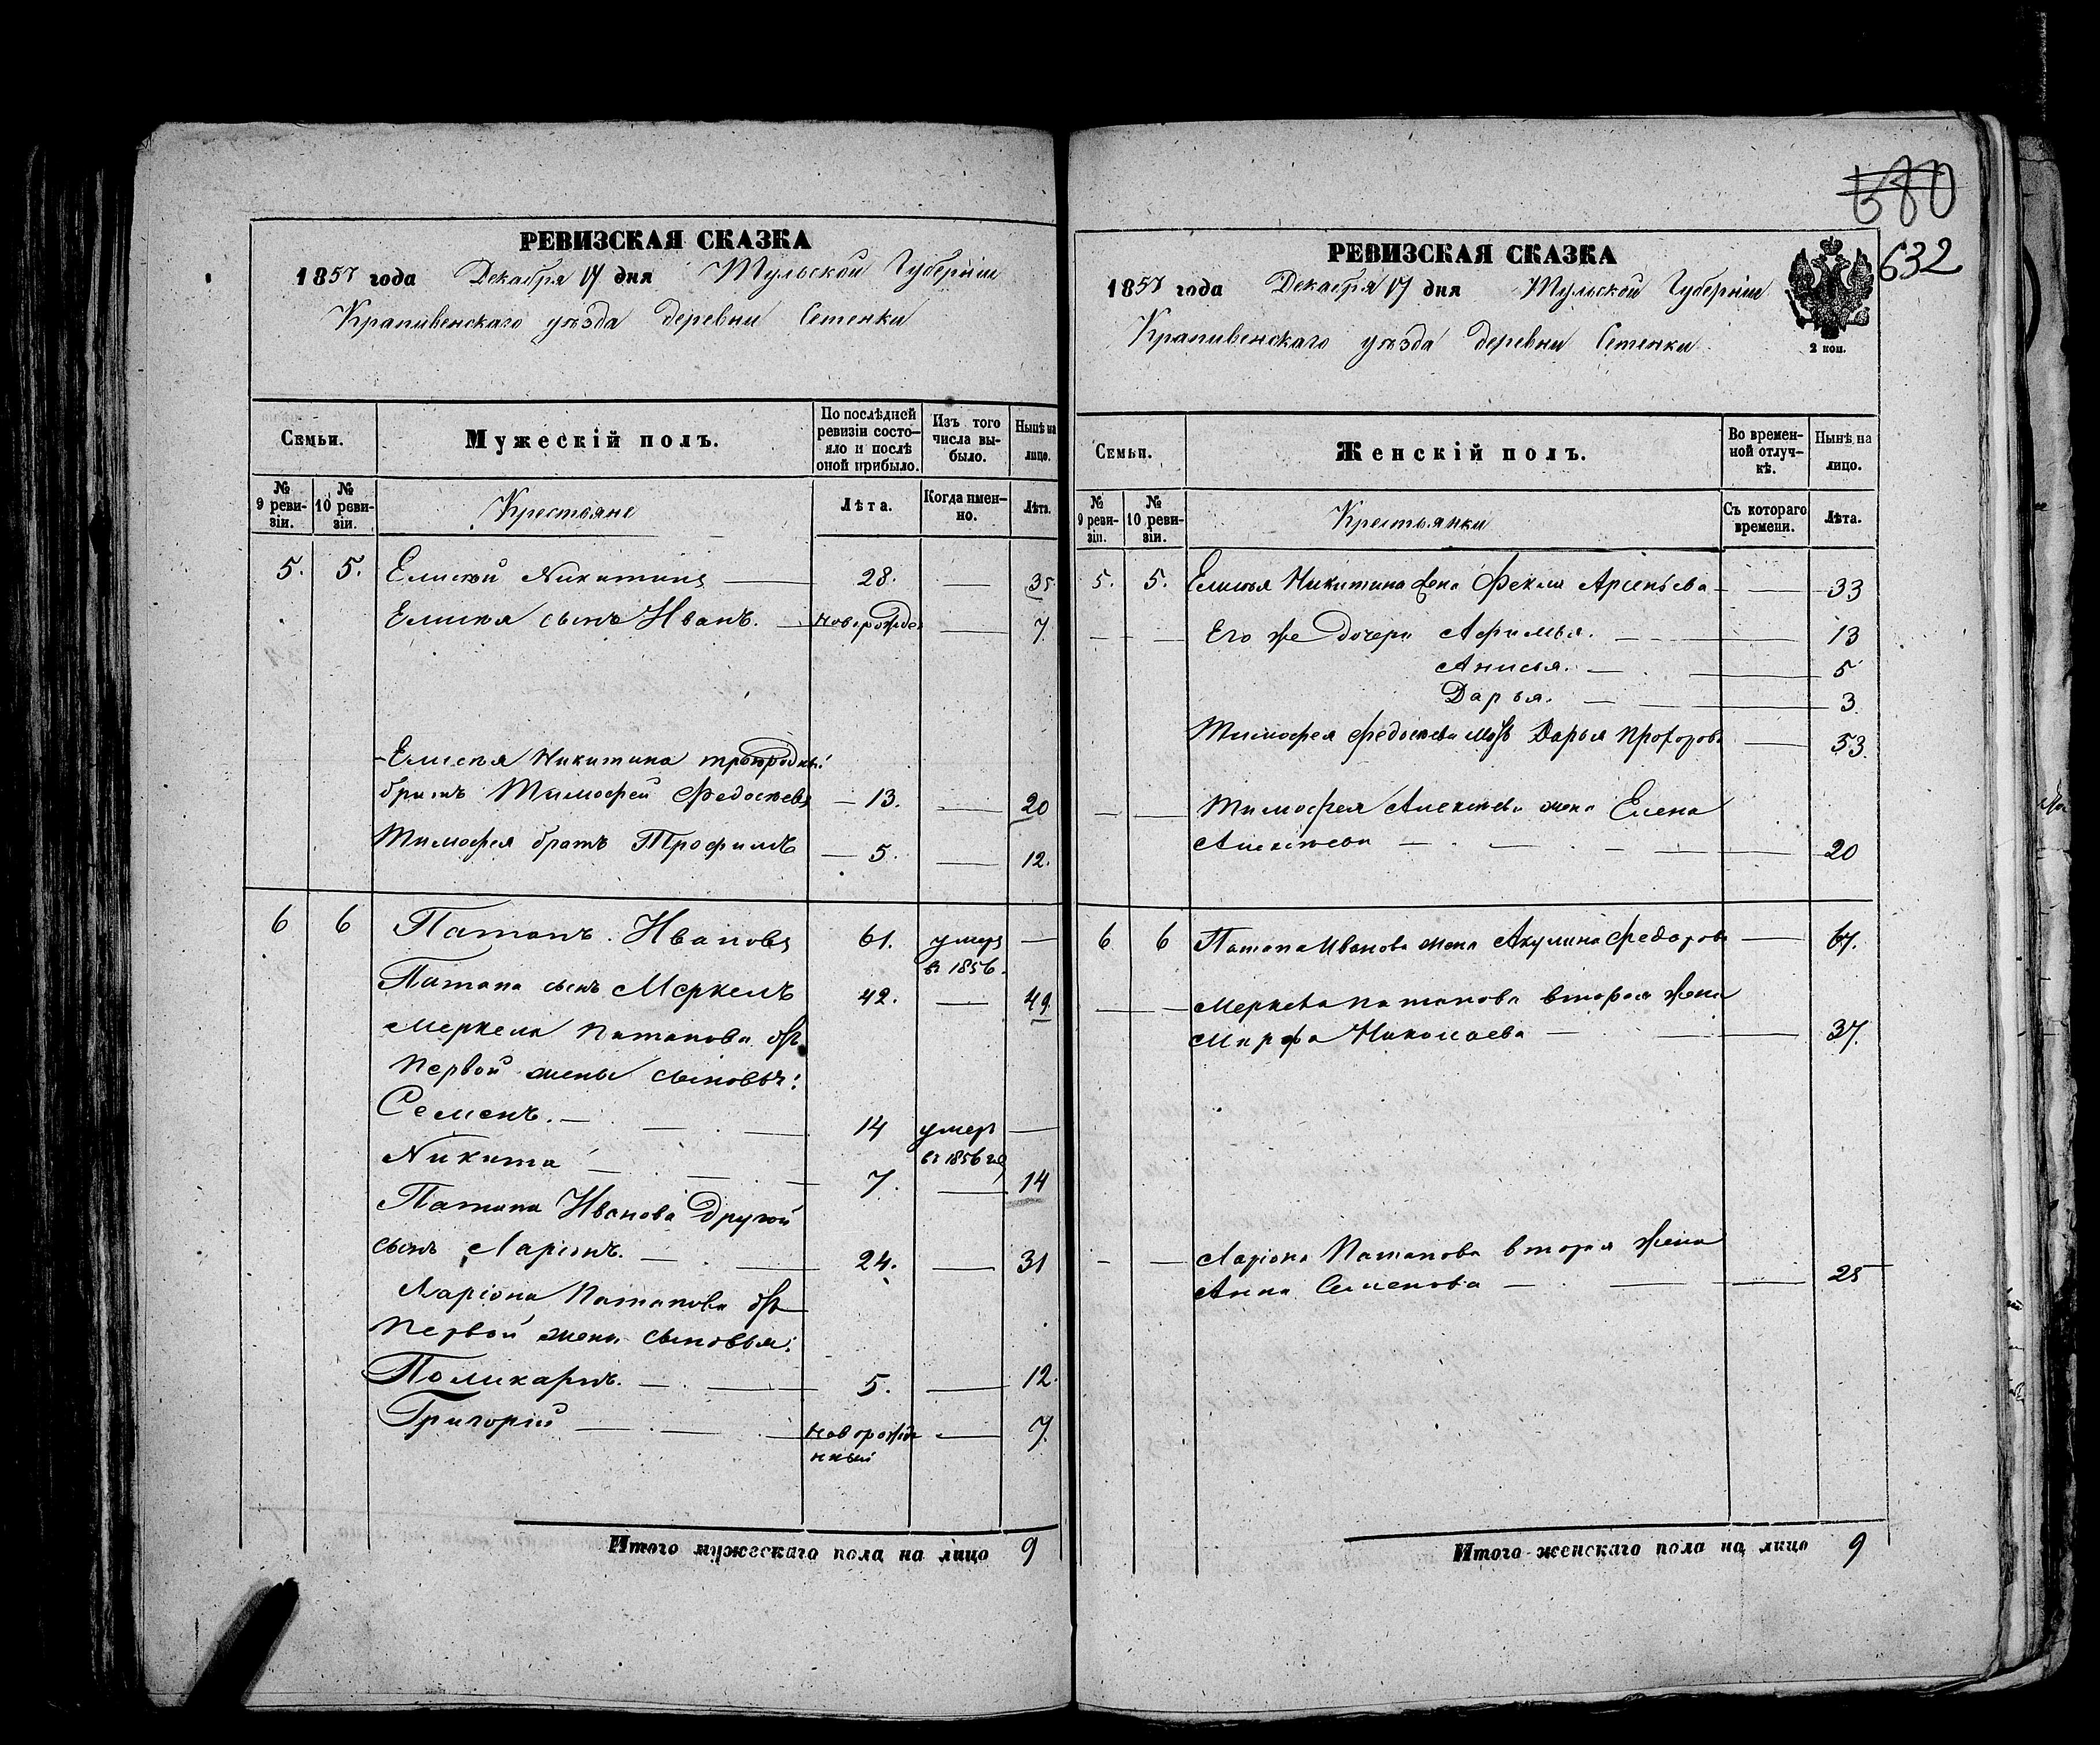 РЕВИЗСКАЯ СКАЗКА
1857 года Декабря 17 дня Тульской Губерніи
Крапивенскаго уѣзда деревни Сетенки
Семьи.
Мужескій полъ.
По послѣдней ревизіи состояло и послѣ оной прибыло.
Изъ того числа выбыло.
Нынѣ на лицо.
№ 9 ревизіи.
№ 10 ревизіи.
Крестьяне
Лѣта.
Когда именно.
Лѣта.
5. 5. Елисѣй Никитинъ — 28. — 35
Елисѣя сынъ Иванъ. — новорожде — 7.
Елисѣя Никитина
братъ Тимофей Федосѣевъ — 13. — 20
Тимофея братъ Трофимъ — 5. — 12.
6 6 Патапъ Ивановъ 61. умеръ —
въ 1856.
Патапа сынъ Меркелъ 42. — 49
Меркела Патапова отъ
первой жены сыновья:
Семенъ. — 14 умеръ —
въ 1856 год
Никита — 7. — 14
Патапа Иванова другой
сынъ Ларіонъ. — 24. — 31
Ларіона Патапова отъ
первой жены сыновья:
Поликарпъ. — 5. — 12.
Григорій — новорожде — 7.
нный
Итого мужескаго пола на лицо 9
680
632
РЕВИЗСКАЯ СКАЗКА
1857 года Декабря 17 дня Тульской Губерніи
Крапивенскаго уѣзда деревни Сетенки
2 коп.
Семьи.
Женскій полъ.
Во временной отлучкѣ.
Нынѣ на лицо.
№ 9 ревизіи.
№ 10 ревизіи.
Крестьянки
Съ котораго времени.
Лѣта.
5. 5. Елисѣя Никитина жена Фекла Арсеньева — 33
Его же дочери Афимья. — 13
Анисья. — 5
Дарья. — 3
Тимофея Федосѣева мать Дарья Прохорова — 53.
Тимофея Алексѣева жена Елена
Алексѣева — 20
6 6 Патапа Иванова жена Акулина Федорова — 67.
Меркела Патапова вторая жена
Марфа Николаева — 37.
Ларіона Патапова вторая жена
Анна Семенова — 25
Итого женскаго пола на лицо 9